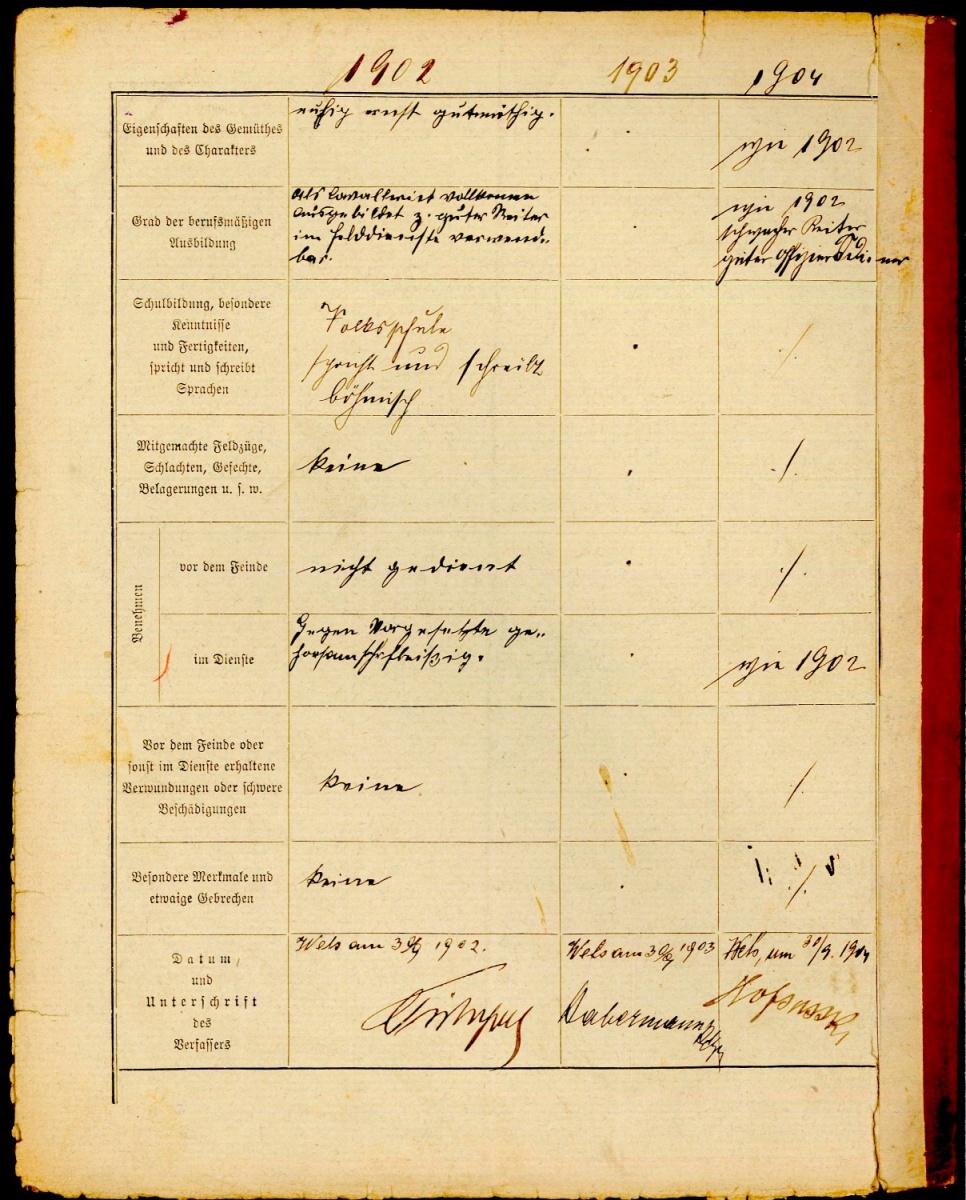 1902 1903 1904
Eigenschaften des Gemüthes
und des Charakters
ruhig ernst gutmüthig.
.
wie 1902
Grad der berufsmäßigen
Ausbildung
als Cavallerist vollkommen
ausgebildet z. guter Reiter
im Felddienste verwend-
bar.
.
wie 1902
schwacher Reiter
guter Offiziersdiener
Schulbildung, besondere
Kenntnisse
und Fertigkeiten,
spricht und schreibt
Sprachen
Volksschule
spricht und schreibt
böhmisch
.
./.
Mitgemachte Feldzüge,
Schlachten, Gefechte,
Belagerungen u. s. w.
keine
.
./.
Benehmen
vor dem Feinde
nicht gedient
.
./.
im Dienste
Gegen Vorgesetzte ge-
horsam sehr fleißig.
.
wie 1902
Vor dem Feinde oder
sonst im Dienste erhaltene
Verwundungen oder schwere
Beschädigungen
keine
.
./.
Besondere Merkmale und
etwaige Gebrechen
keine
.
./.
Datum,
und
Unterschrift
des
Verfassers
Wels am 30/9 1902.
Wels am 30/9 1903
Wels, am 30/9. 1904
Habermann